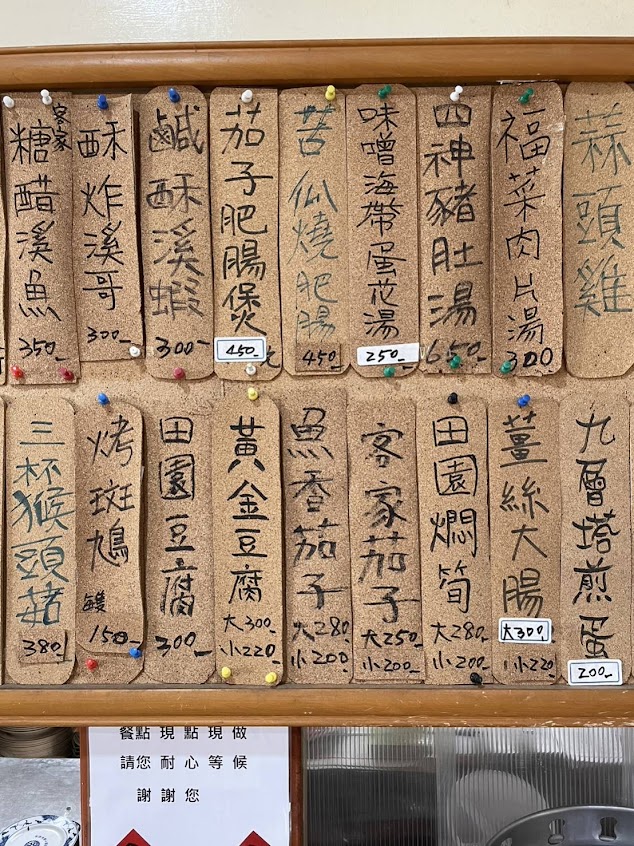 蒜頭雞
福菜肉片湯
300
四神豬肚湯
650-
味噌海帶蛋花湯
250-
苦瓜燒肥腸
450-
茄子肥腸煲
450-
元
鹹酥溪蝦
300-
酥炸溪哥
300-
客家
糖醋溪魚
350-
九層塔煎蛋
200-
薑絲大腸
大300-
小220
田園燜筍
大280-
小200-
客家茄子
大250-
小200-
魚香茄子
大280
小200
黃金豆腐
大300-
小220-
田園豆腐
300-
烤斑鳩
150-
三杯猴頭菇
380-
餐點現點現做
請您耐心等候
謝謝您